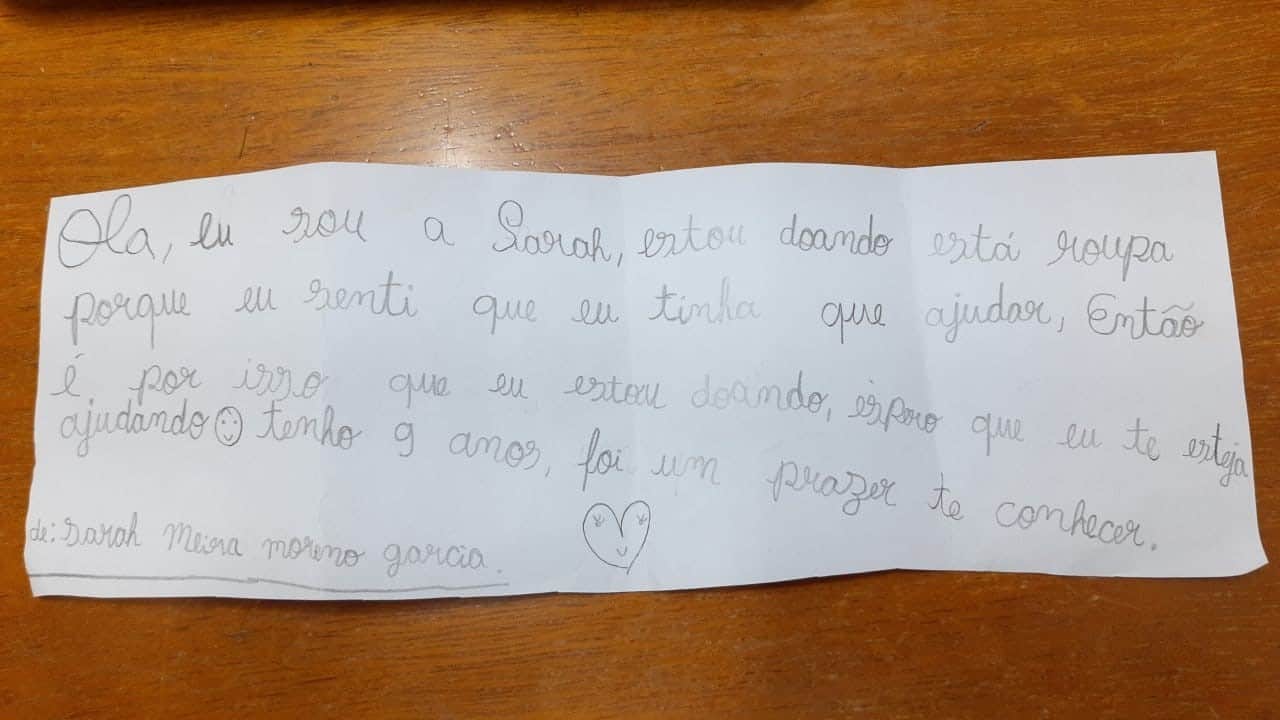 Ola, eu sou a Sarah, estou doando está roupa
porque eu senti que eu tinha que ajudar, Então
é por isso que eu estou doando, espero que eu te esteja
ajudando tenho 9 anos, foi um prazer te conhecer.
de: Sarah Meira moreno garcia.